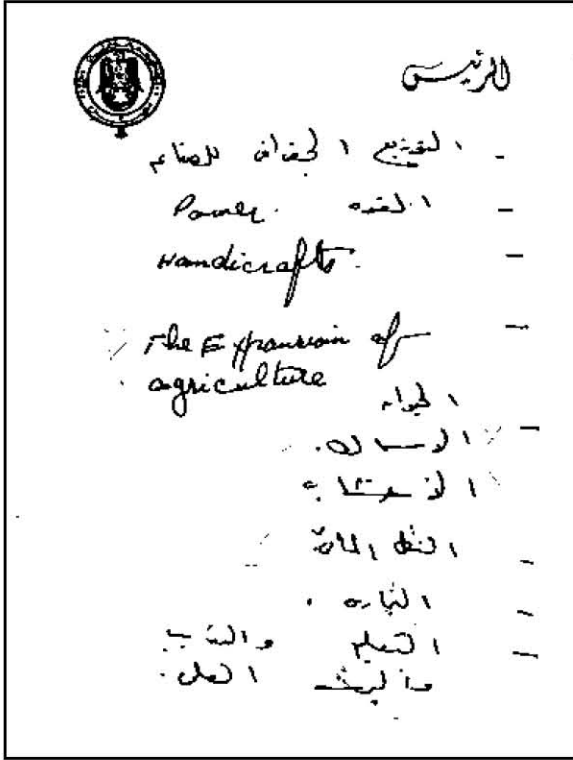 الرئيس
- التوزيع الجغرافى للصناعه
- القوه Power.
- Handicrafts.
- The Expansion of
agriculture
الحيوانـ
- الاسماك.
الأخشاب
- النقل المائى
- التجاره.
- التعليم والتدريب
والبحث العلمى.